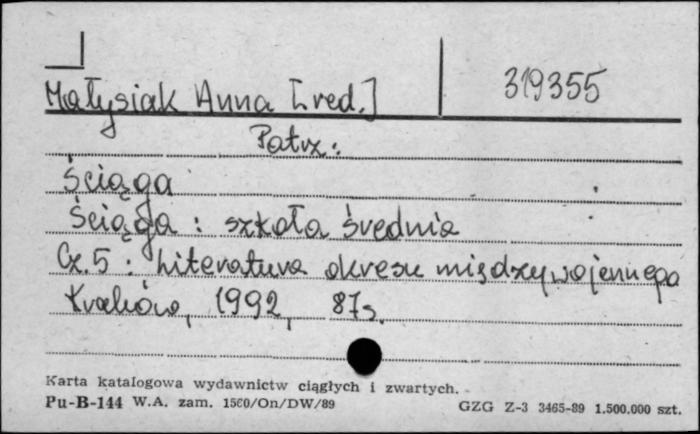 Małysiak Anna [red.]
319355
Patrz:
Ściąga
Ściąga : szkoła średnia
Cz. 5 : Literatura okresu międzywojennego
Kraków, 1992, 87s.
Karta katalogowa wydawnictw ciągłych i zwartych.
Pu-B-144 W.A. zam. 1560/On/DW/89
GZG Z-3 3465-89 1.500.000 szt.